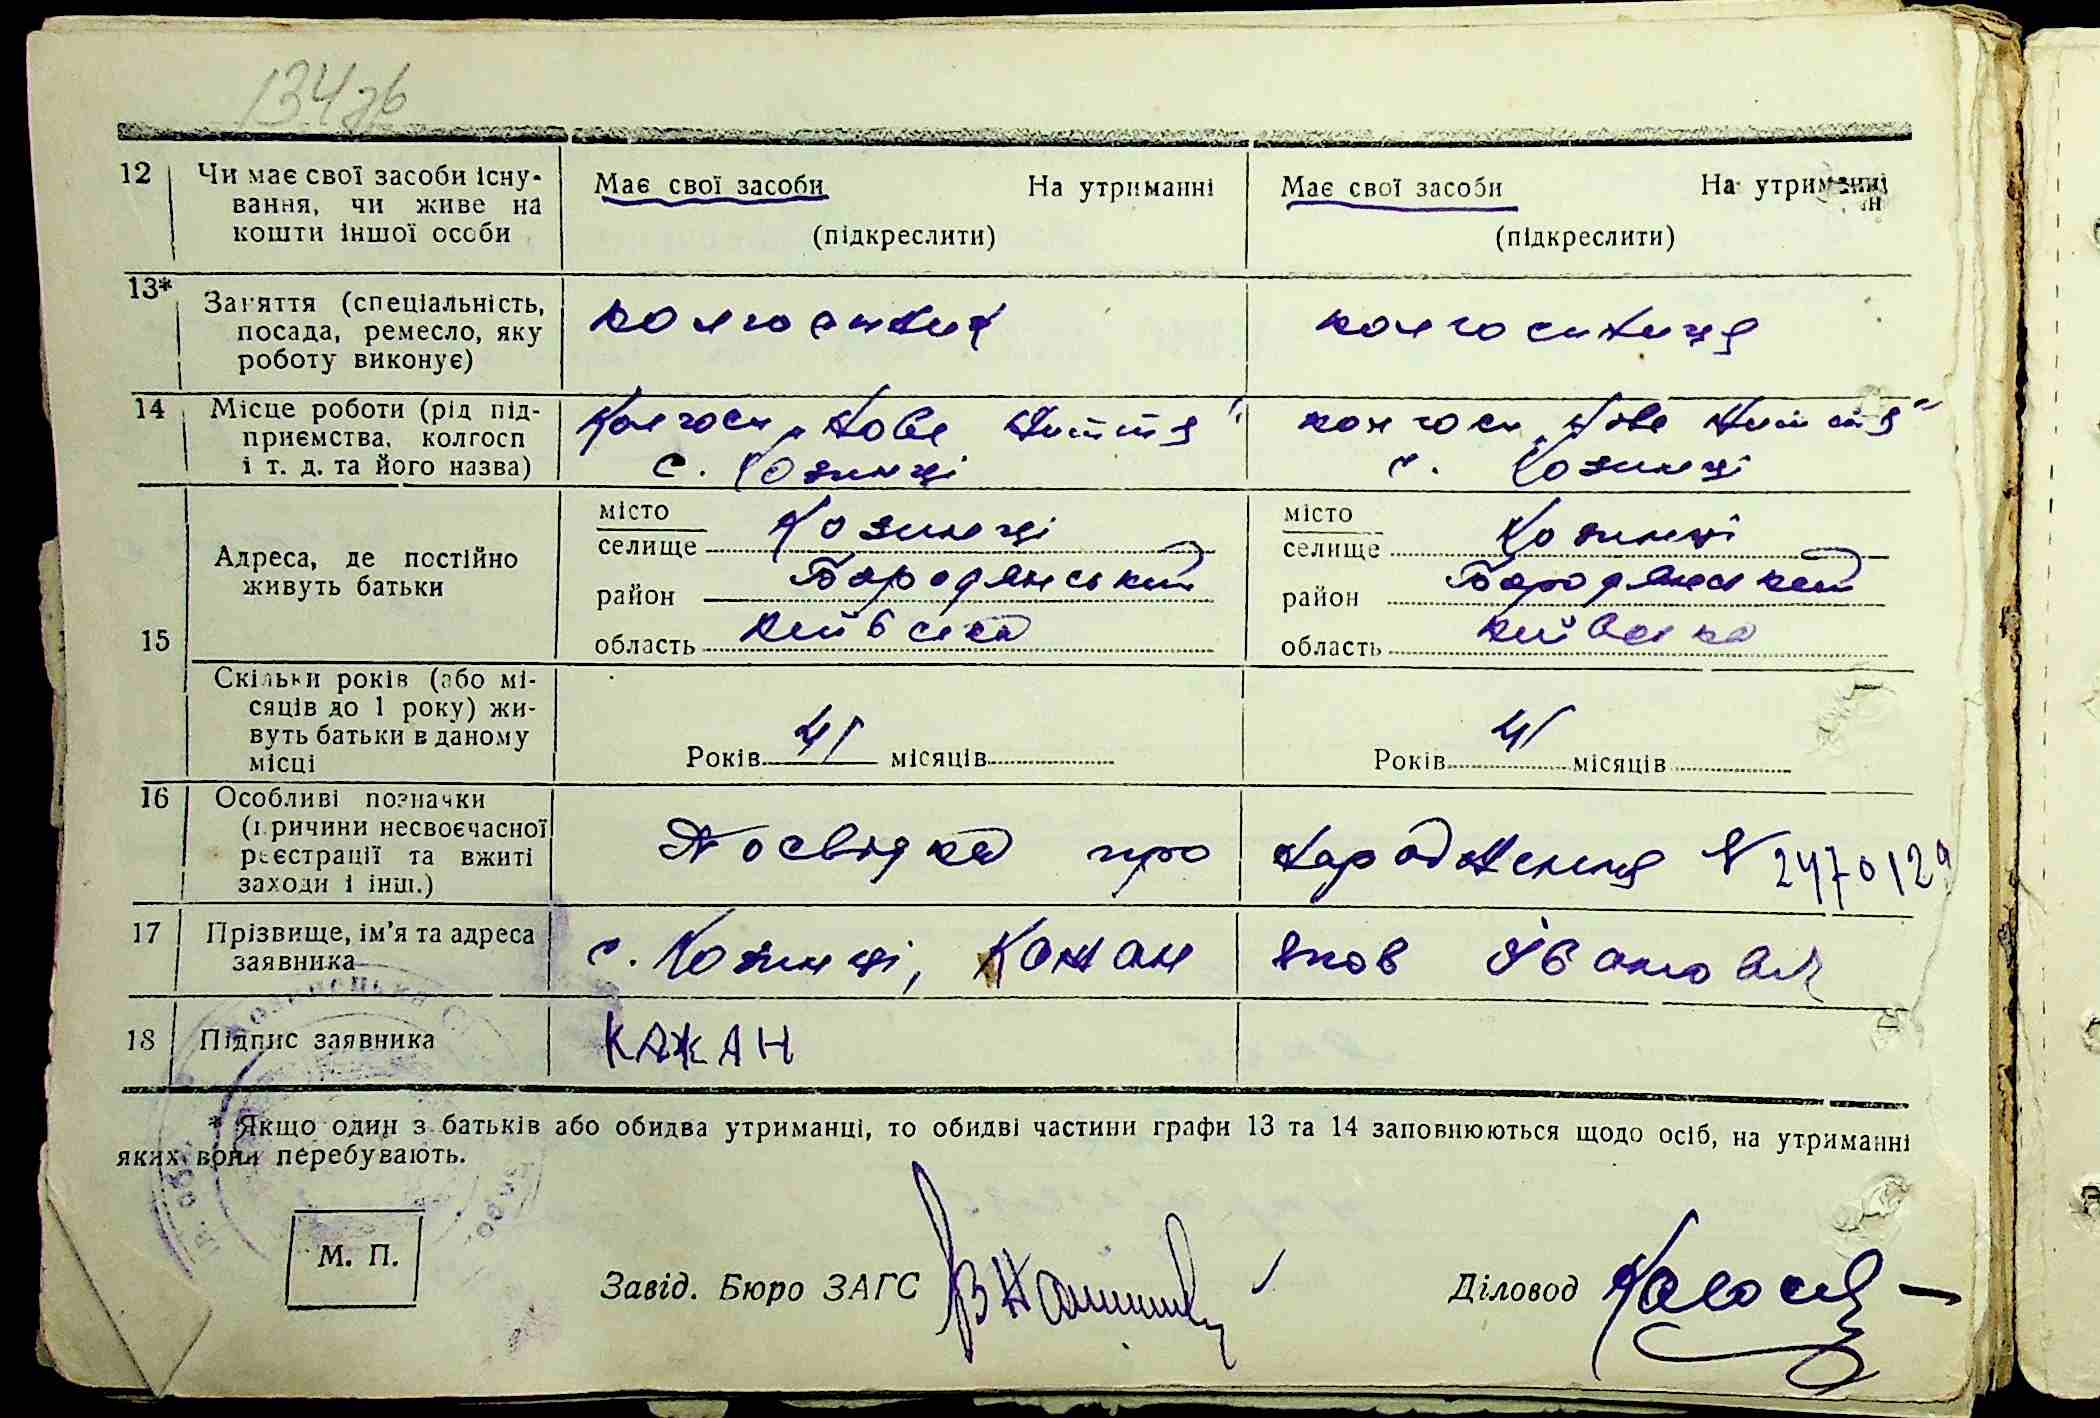 134зв
12 Чи має свої засоби існу-
вання, чи живе на
кошти іншої особи
Має свої засоби На утриманні
(підкреслити)
Має свої засоби На утриманні
(підкреслити)
13* Заняття (спеціальність,
посада, ремесло, яку
роботу виконує)
колгоспник
колгоспниця
14 Місце роботи (рід під-
приємства, колгосп
і т. д. та його назва)
Колгосп „Нове життя"
с. Козинці
колгосп „Нове життя"
с. Козинці
15 Адреса, де постійно
живуть батьки
місто
селище Козинці
район Бородянський
область Київська
місто
селище Козинці
район Бородянський
область Київська
Скільки років (або мі-
сяців до 1 року) жи-
вуть батьки в даному
місці
Років 41 місяців
Років 41 місяців
16 Особливі позначки
(причини несвоєчасної
реєстрації та вжиті
заходи і інш.)
Посвідка про народження № 2470129
17 Прізвище, ім'я та адреса
заявника
с. Козинці, Кажан Яков Іванович
18 Підпис заявника
КАЖАН
* Якщо один з батьків або обидва утриманці, то обидві частини графи 13 та 14 заповнюються щодо осіб, на утриманні
яких вони перебувають.
М. П.
Завід. Бюро ЗАГС
Діловод